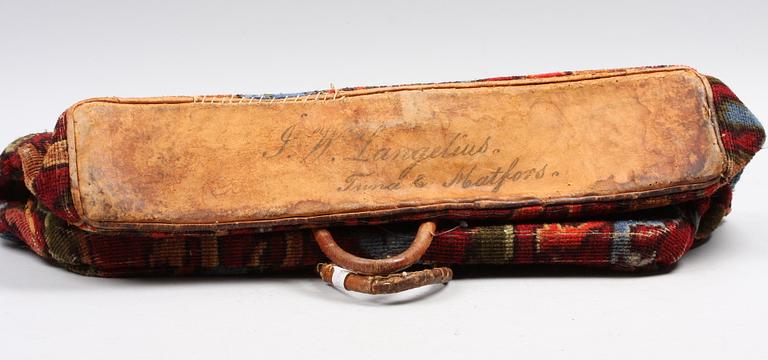 J. W. Langelius.
Tuna & Matfors.